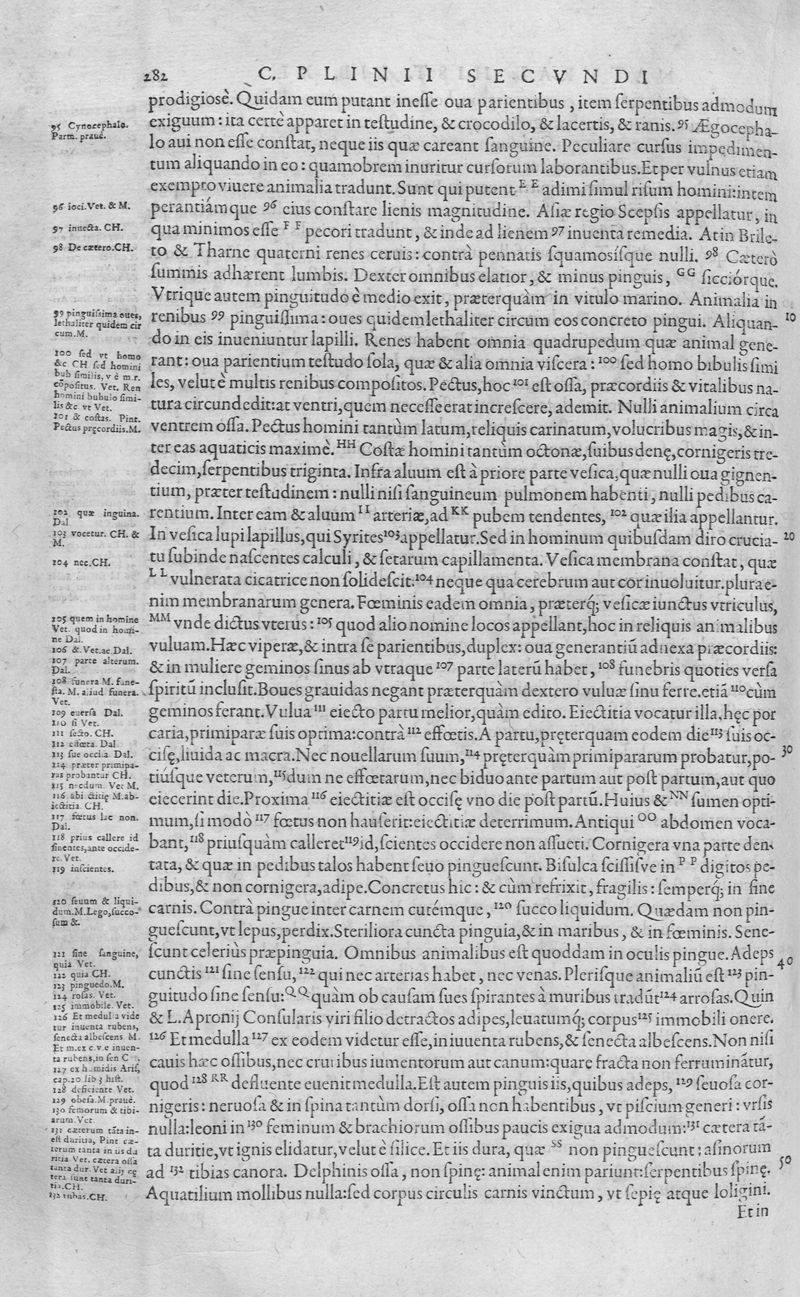 282 C. PLINII SECVNDI
prodigiosè. Quidam eum putant inesse oua parientibus, item serpentibus admodum
exiguum: ita certè apparet in testudine, & crocodilo, & lacertis, & ranis. 95 Ægocepha-
lo aui non esse constat, neque iis quæ careant sanguine. Peculiare cursus impedimen-
tum aliquando in eo: quamobrem inuritur cursorum laborantibus. Et per vulnus etiam
exempto viuere animalia tradunt. Sunt qui putent E E adimi simul risum homini: intem
perantiámque 96 eius constare lienis magnitudine. Asiæ regio Scepsis appellatur, in
qua minimos esse F F pecori tradunt, & inde ad lienem 97 inuenta remedia. At in Brile-
to & Tharne quaterni renes ceruis: contrà pennatis squamosísque nulli. 98 Cæterò
summis adhærent lumbis. Dexter omnibus elatior, & minus pinguis, GG sicciórque.
Vtrique autem pinguitudo è medio exit, præterquàm in vitulo marino. Animalia in
renibus 99 pinguissima: oues quidem lethaliter circum eos concreto pingui. Aliquan- 10
do in eis inueniuntur lapilli. Renes habent omnia quadrupedum quæ animal gene-
rant: oua parientium testudo sola, quæ & alia omnia viscera: 100 sed homo bibulis simi
les, velut è multis renibus compositos. Pectus, hoc 101 est ossa, præcordiis & vitalibus na-
tura circundedit: at ventri, quem necesse erat increscere, ademit. Nulli animalium circa
ventrem ossa. Pectus homini tantùm latum, reliquis carinatum, volucribus magis, & in-
ter eas aquaticis maximè. HH Costæ homini tantùm octonæ, suibus denę, cornigeris tre-
decim, serpentibus triginta. Infra aluum est à priore parte vesica, quæ nulli oua gignen-
tium, præter testudinem: nulli nisi sanguineum pulmonem habenti, nulli pedibus ca-
rentium. Inter eam & aluum II arteriæ, ad KK pubem tendentes, 102 quæ ilia appellantur.
In vesica lupi lapillus, qui Syrites 103 appellatur. Sed in hominum quibusdam diro crucia- 20
tu subinde nascentes calculi, & setarum capillamenta. Vesica membrana constat, quæ
L L vulnerata cicatrice non solidescit: 104 neque qua cerebrum aut cor inuoluitur. plura e-
nim membranarum genera. Fœminis eadem omnia, præterq; vesicæ iunctus vtriculus,
MM vnde dictus vterus: 105 quod alio nomine locos appellant, hoc in reliquis animalibus
vuluam. Hæc viperæ, & intra se parientibus, duplex: oua generantiū adnexa præcordiis:
& in muliere geminos sinus ab vtraque 107 parte laterū habet, 108 funebris quoties versa
spiritū inclusit. Boues grauidas negant præterquàm dextero vuluæ sinu ferre. etiā 110 cùm
geminos ferant. Vulua 111 eiecto partu melior, quàm edito. Eiectitia vocatur illa, hęc por
caria, primiparæ suis optima: contrà 112 effœtis. A partu, pręterquam eodem die 113 suis oc-
cisę, liuida ac macra. Nec nouellarum suum, 114 præterquàm primipararum probatur, po- 30
tiúsque veterum, 115 dum ne effœtarum, nec biduo ante partum aut post partum, aut quo
eiecerint die. Proxima 116 eiectitiæ est occisę vno die post partū. Huius & NN sumen opti-
mum, si modò 117 fœtus non hauserit: eiectitiæ deterrimum. Antiqui OO abdomen voca-
bant, 118 priusquàm calleret 119 id, scientes occidere non assueti. Cornigera vna parte den-
tata, & quæ in pedibus talos habent seuo pinguescunt. Bisulca scissisve in P P digitos pe-
dibus, & non cornigera, adipe. Concretus hic: & cùm refrixit, fragilis: semperq; in fine
carnis. Contrà pingue inter carnem cutémque, 120 succo liquidum. Quædam non pin-
guescunt, vt lepus, perdix. Steriliora cuncta pinguia, & in maribus, & in fœminis. Sene-
scunt celeriùs præpinguia. Omnibus animalibus est quoddam in oculis pingue. Adeps
cunctis 121 sine sensu, 122 qui nec arterias habet, nec venas. Plerisque animaliū est 123 pin- 40
guitudo sine sensu: QQ quàm ob causam sues spirantes à muribus tradūt 124 arrosas. Quin
& L. Apronij Consularis viri filio detractos adipes, leuatumq; corpus 125 immobili onere.
126 Et medulla 127 ex eodem videtur esse, in iuuenta rubens, & senecta albescens. Non nisi
cauis hæc ossibus, nec cruribus iumentorum aut canum: quare fracta non ferruminātur,
quod 128 RR defluente euenit medulla. Est autem pinguis iis, quibus adeps, 129 seuosa cor-
nigeris: neruosa & in spina tantùm dorsi, ossa non habentibus, vt piscium generi: vrsis
nulla: leoni in 130 feminum & brachiorum ossibus paucis exigua admodum: 131 cætera tā-
ta duritie, vt ignis elidatur, velut è silice. Et iis dura, quæ SS non pinguescunt: asinorum
ad 132 tibias canora. Delphinis ossa, non spinę: animal enim pariunt: serpentibus spinę. 50
Aquatilium mollibus nulla: sed corpus circulis carnis vinctum, vt sepię atque loligini.
Et in
95 Cynocephalo.
Parm. prauè.
96 ioci. Vet. & M.
97 inuecta. CH.
98 De cætero. CH.
99 pinguissima oues,
lethaliter quidem cir
cum. M.
100 sed vt homo
&c CH sed homini
bub similis, v è m r.
cōpositus. Vet. Ren
homini bubulo simi-
lis &c vt Vet.
101 & costas. Pint.
Pectus pręcordiis. M.
102 quæ inguina.
Dal
103 vocetur. CH. &
M.
104 nec. CH.
105 quem in homine
Vet. quod in homi-
ne Dal.
106 &. Vet. ac Dal.
107 parte alterum.
Dal.
108 funera M. fune-
sta. M. aliud funera.
Vet.
109 euersa Dal.
110 si Vet.
111 fecto. CH.
112 effœta. Dal.
113 sue occisa. Dal.
114 præter primipa-
ras probantur CH.
115 nedum. Vet M.
116 abiectitię M. ab-
iectitia. CH.
117 fœtus hæc non.
Dal.
118 prius callere id
sinentes, ante occide-
re. Vet.
119 inscientes.
120 seuum & liqui-
dum. M. Lego, succo-
sum &.
121 sine sanguine,
quia Vet.
122 quia CH.
123 pinguedo. M.
124 rosas. Vet.
125 immobile. Vet.
126 Et medulla vide
tur inuenta rubens,
senecta albescens M.
Et m. ex e. v. e inuen-
ta rubens, in sen C
127 ex humidis Arist.
cap. 20 lib 3 hist.
128 deficiente Vet.
129 obesa. M. prauè.
130 femorum & tibi-
arum Vet.
131 cæterum tāta in-
est duritia, Pint cæ-
terum tanta in iis du
ritia Vet. cætera ossa
tanta dur. Vet alij cę
tera sunt tanta duri-
tia. CH.
132 tubas. CH.